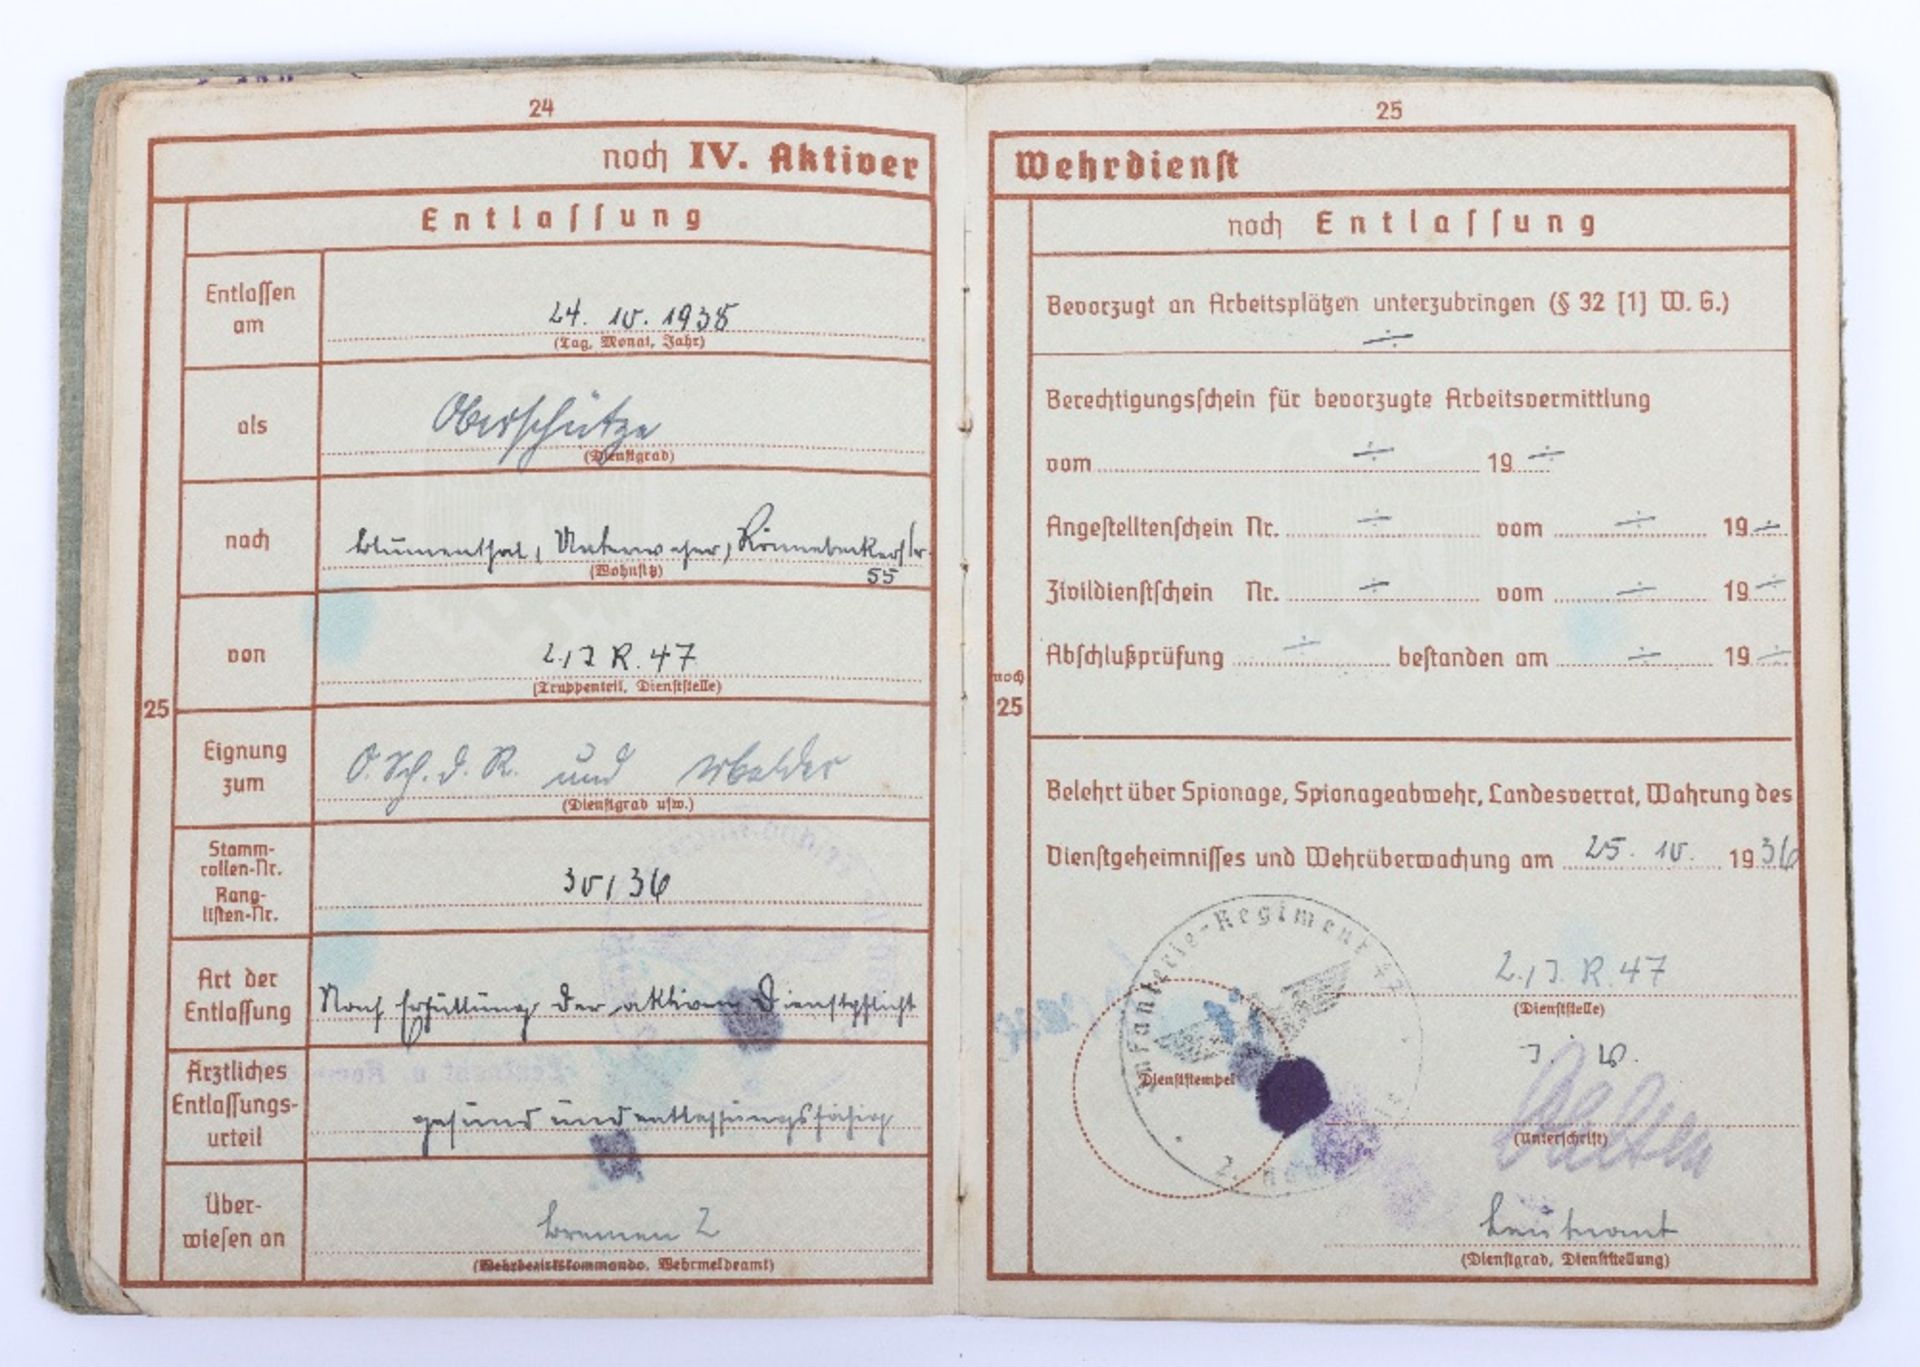 24
noch IV. Aktiver
Entlassung
Entlassen am
24. 10. 1938
(Tag, Monat, Jahr)
als
Oberschütze
(Dienstgrad)
nach
Blumenthal, Unterweser, Rönnebeckerstr.
55
(Wohnsitz)
von
2./J.R. 47
(Truppenteil, Dienststelle)
25
Eignung zum
O.Sch.d.R. und Melder
(Dienstgrad usw.)
Stamm-
rollen-Nr.
Rang-
listen-Nr.
30/36
Art der
Entlassung
Nach Erfüllung der aktiven Dienstpflicht
Ärztliches
Entlassungs-
urteil
gesund und entlassungsfähig
Über-
wiesen an
Bremen 2
(Wehrbezirkskommando, Wehrmeldeamt)
25
Wehrdienst
noch Entlassung
Bevorzugt an Arbeitsplätzen unterzubringen (§ 32 [1] W. G.)
÷
Berechtigungsschein für bevorzugte Arbeitsvermittlung
vom ÷ 19 ÷
Angestelltenschein Nr. ÷ vom ÷ 19 ÷
Zivildienstschein Nr. ÷ vom ÷ 19 ÷
Abschlußprüfung ÷ bestanden am ÷ 19 ÷
noch
25
Belehrt über Spionage, Spionageabwehr, Landesverrat, Wahrung des
Dienstgeheimnisses und Wehrüberwachung am 25. 10. 1936
Infanterie-Regiment 47
2.
Dienststempel
2./J.R. 47
(Dienststelle)
J. V.
(Unterschrift)
Leutnant
(Dienstgrad, Dienststellung)